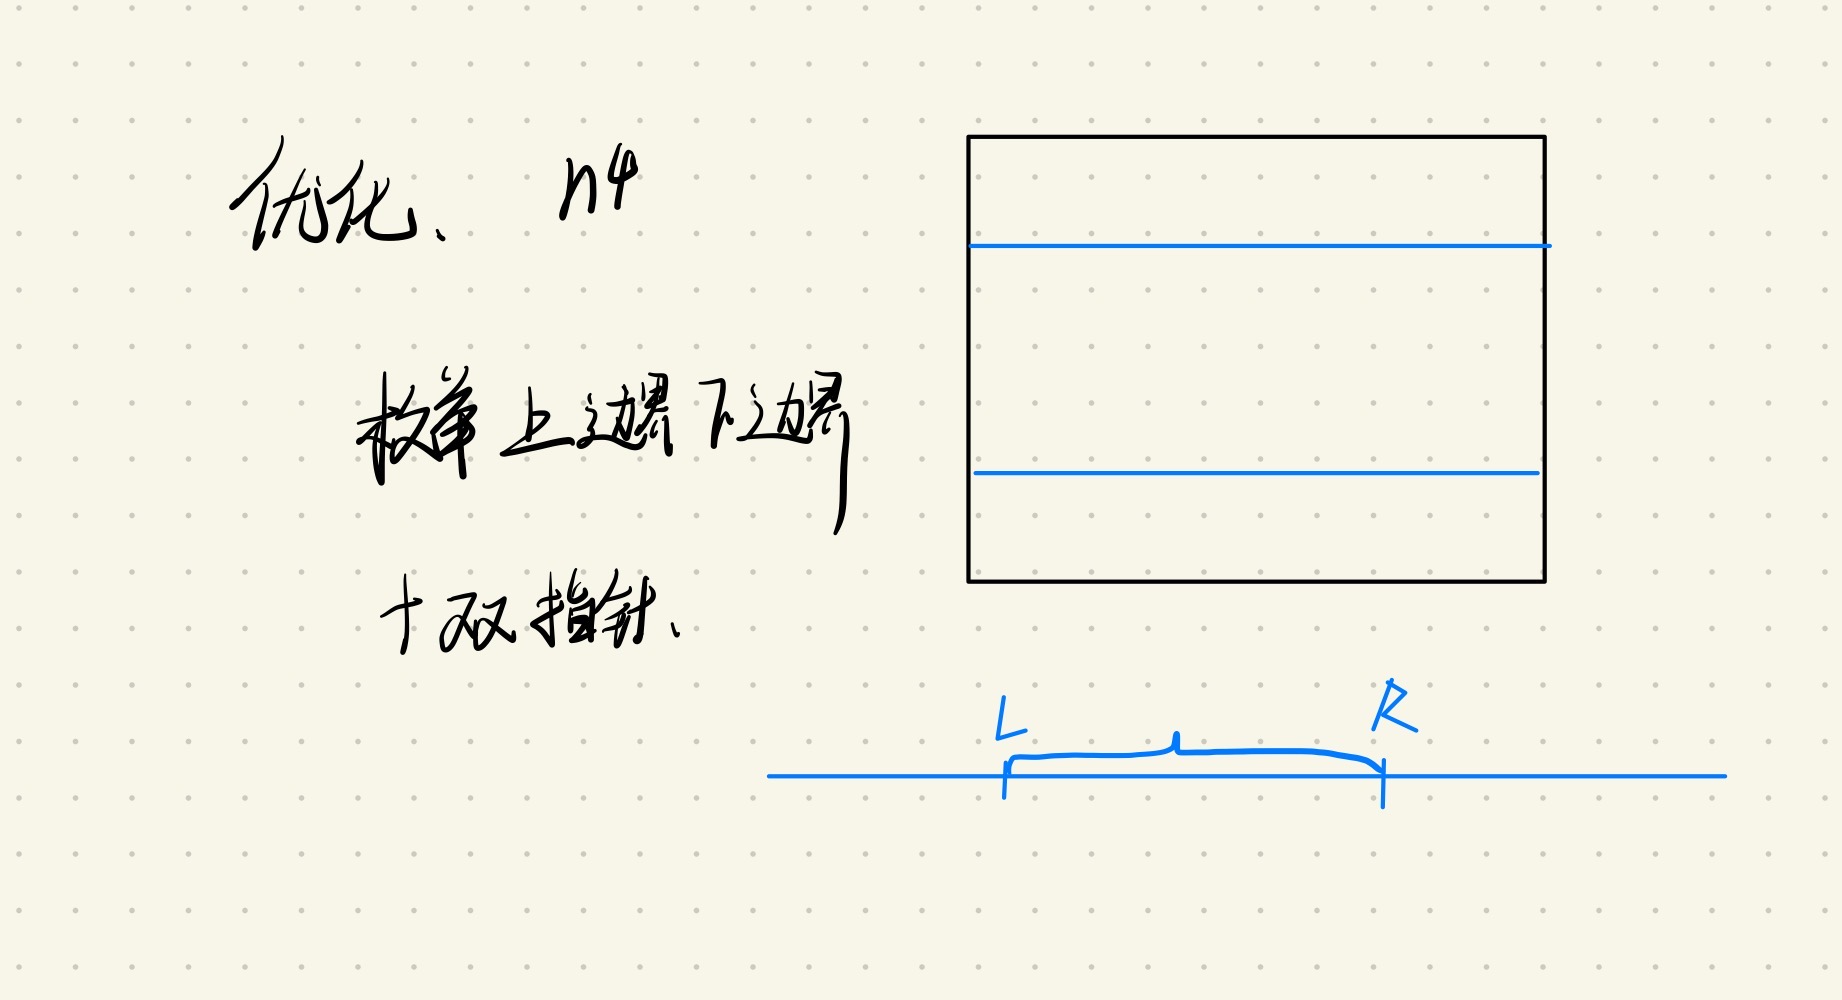 优化、 n4
枚举上边界下边界
+双指针、
L R